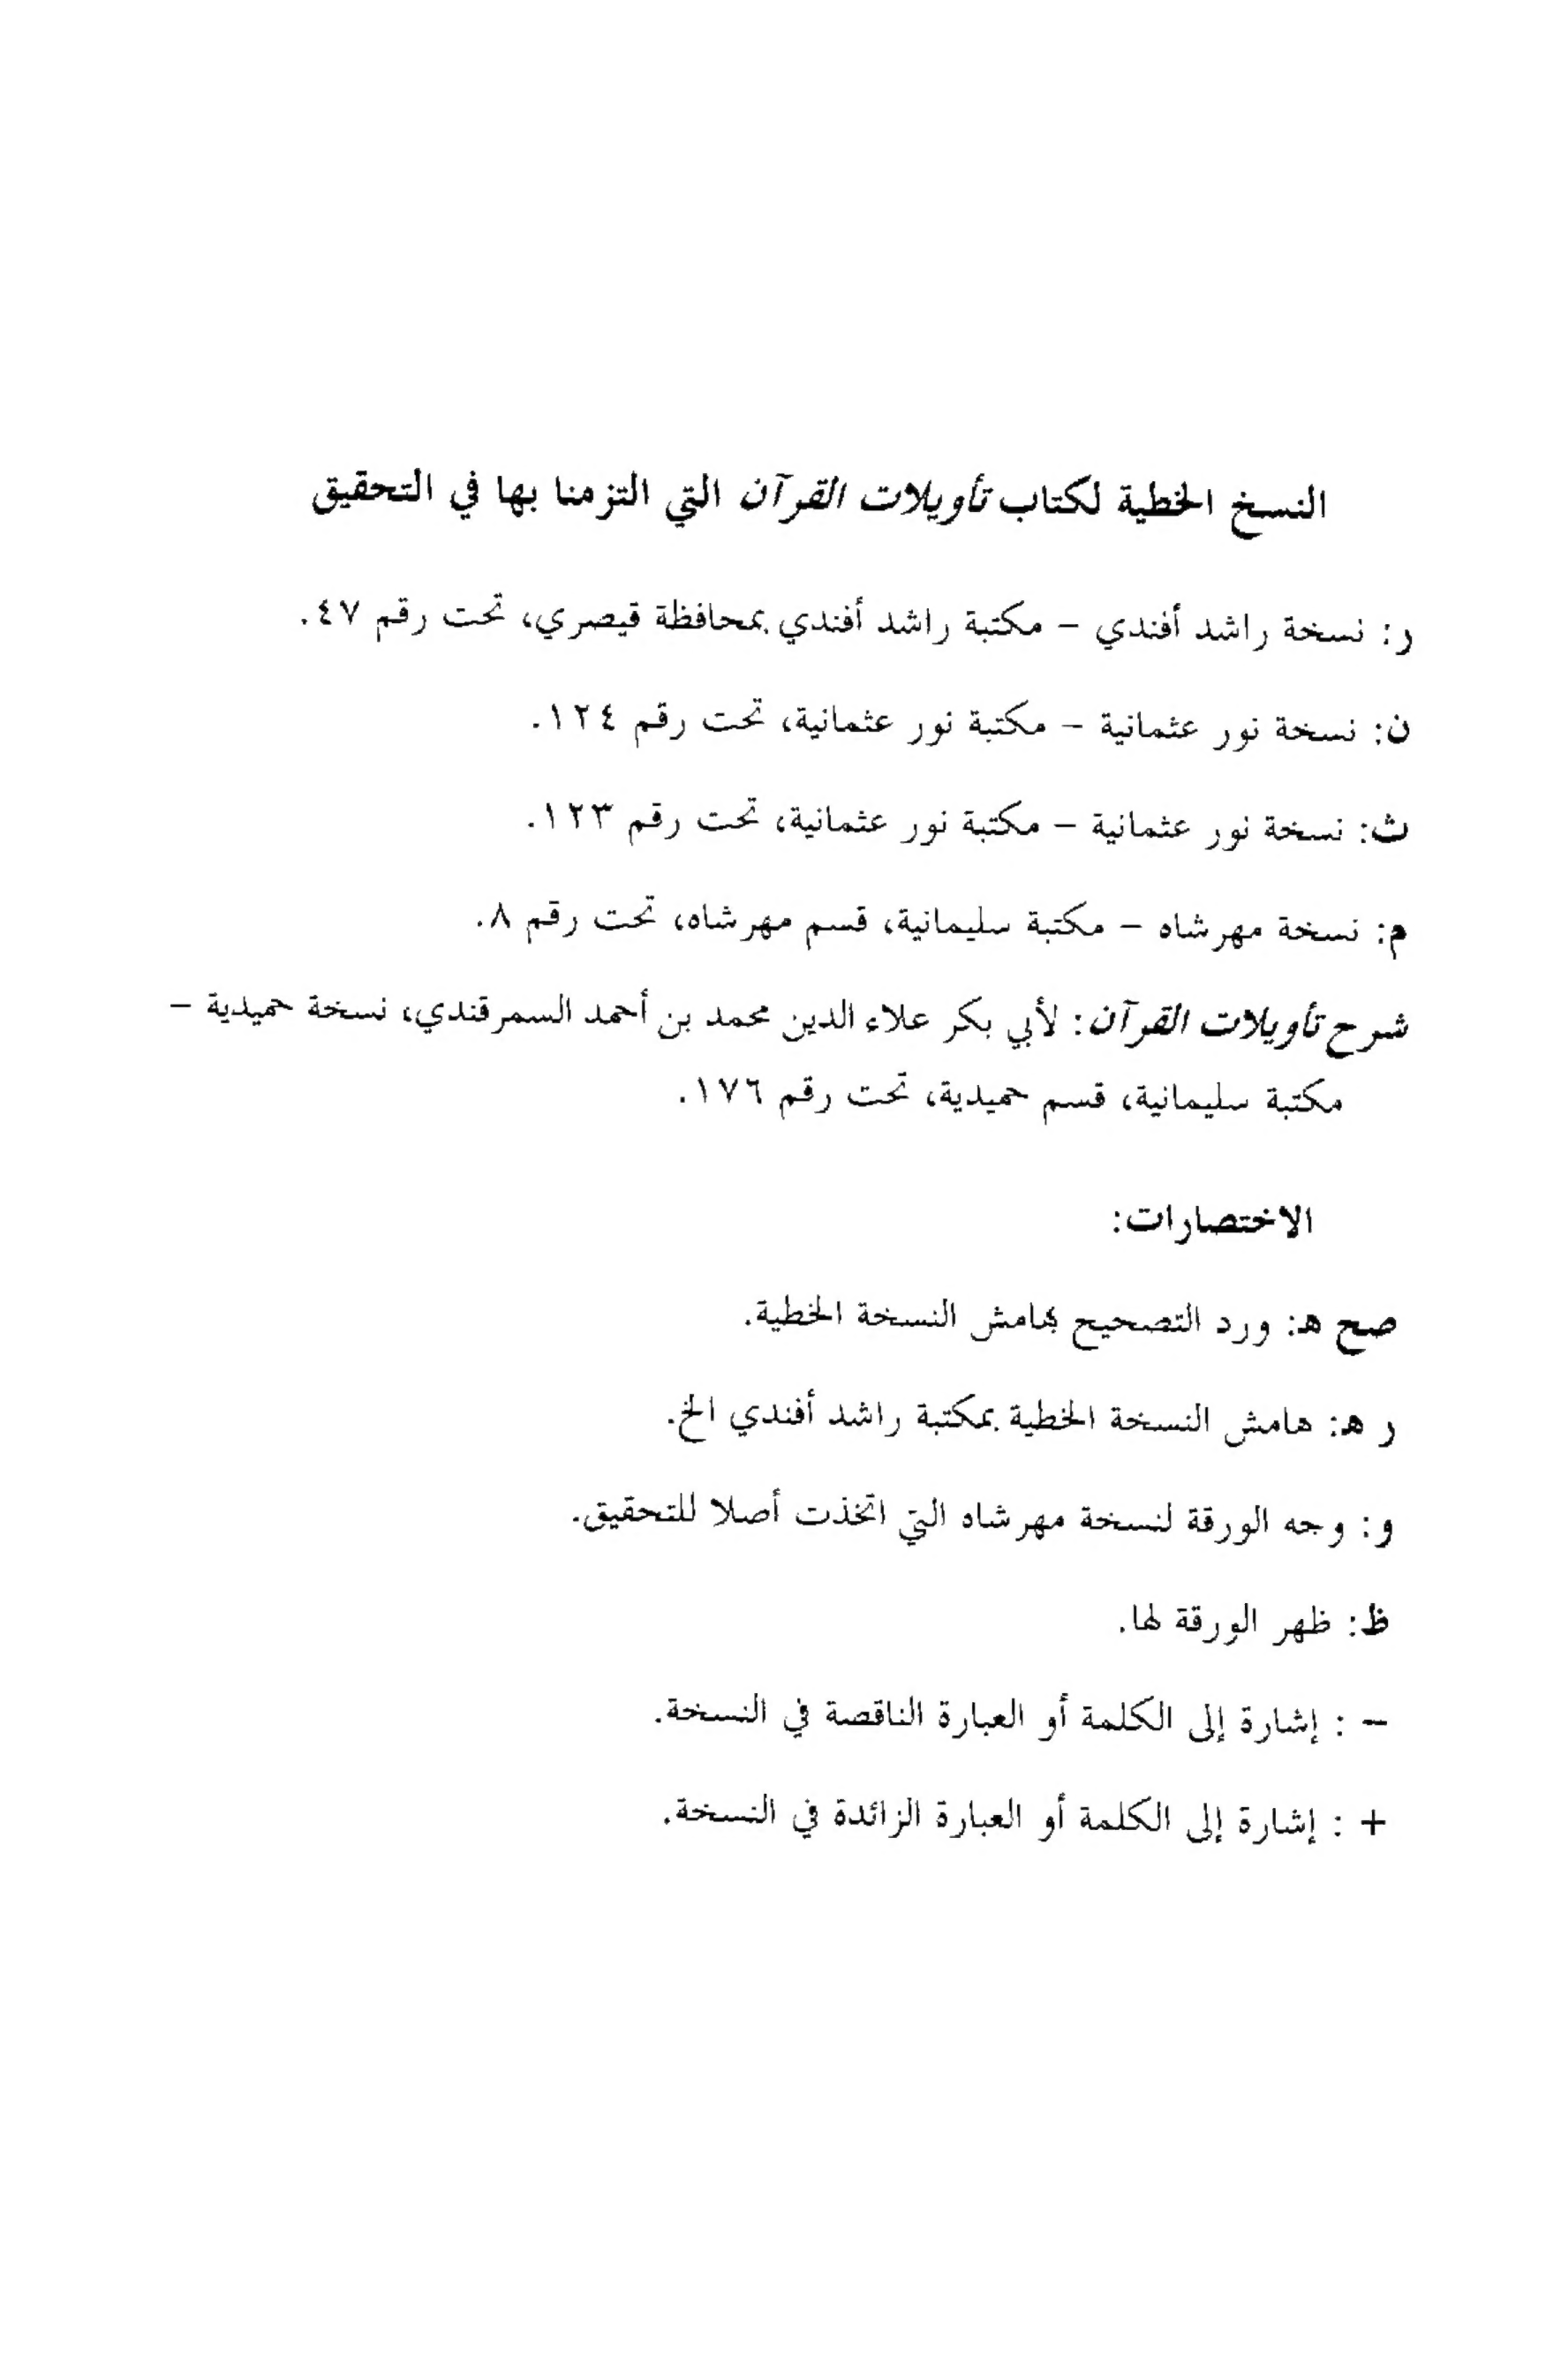 النسخ الخطية لكتاب تأويلات القرآن التي التزمنا بها في التحقيق
ر: نسخة راشد أفندي – مكتبة راشد أفندي بمحافظة قيصري، تحت رقم ٤٧.
ن: نسخة نور عثمانية – مكتبة نور عثمانية، تحت رقم ١٢٤.
ث: نسخة نور عثمانية – مكتبة نور عثمانية، تحت رقم ١٢٣.
م: نسخة مهرشاه – مكتبة سليمانية، قسم مهرشاه، تحت رقم ٨.
شرح تأويلات القرآن: لأبي بكر علاء الدين محمد بن أحمد السمرقندي، نسخة حميدية –
مكتبة سليمانية، قسم حميدية، تحت رقم ١٧٦.
الاختصارات:
صح هـ: ورد التصحيح بهامش النسخة الخطية.
ر هـ: هامش النسخة الخطية بمكتبة راشد أفندي الخ.
و: وجه الورقة لنسخة مهرشاه التي اتخذت أصلا للتحقيق.
ظ: ظهر الورقة لها.
– : إشارة إلى الكلمة أو العبارة الناقصة في النسخة.
+ : إشارة إلى الكلمة أو العبارة الزائدة في النسخة.